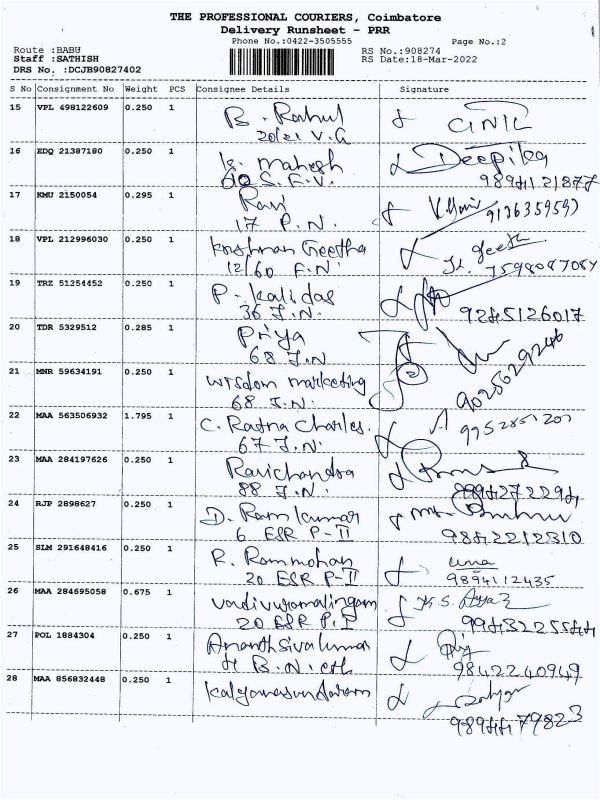 THE PROFESSIONAL COURIERS, Coimbatore
Delivery Runsheet - PRR
Phone No.:0422-3505555 Page No.:2
Route :BABU RS No.:908274
Staff :SATHISH RS Date:18-Mar-2022
DRS No. :DCJB90827402
S No Consignment No Weight PCS Consignee Details Signature
15 VPL 498122609 0.250 1 B. Rahul
20/21 V.G
16 EDQ 21387180 0.250 1 K. Mahesh Deepika
S.F.V.
17 KMU 2150054 0.295 1 Ravi
17 P.N.
18 VPL 212996030 0.250 1 Krishnan Geetha
12/60 F.N. 7598087087
19 TRZ 51254452 0.250 1 P. Kalidas
36 J.N. 9245126017
20 TDR 5329512 0.285 1 Priya
68 J.N 9025629246
21 MNR 59634191 0.250 1 Wisdom marketing
68 J.N.
22 MAA 563506932 1.795 1 C. Ratna Charles.
67 J.N. 9952851201
23 MAA 284197626 0.250 1 Ravichandra
88 J.N. 9894272294
24 RJP 2898627 0.250 1 D. Ram kumar
6 ESR P-II 9842212310
25 SLM 291648416 0.250 1 R. Rammohan uma
20 ESR P-II 9894112435
26 MAA 284695058 0.675 1 Vadivuramalingam
20 ESR P.I 9943225544
27 POL 1884304 0.250 1 Ananthsivakumar
4 B.N. 9842240949
28 MAA 856832448 0.250 1 Kalyanasundaram
9894479823